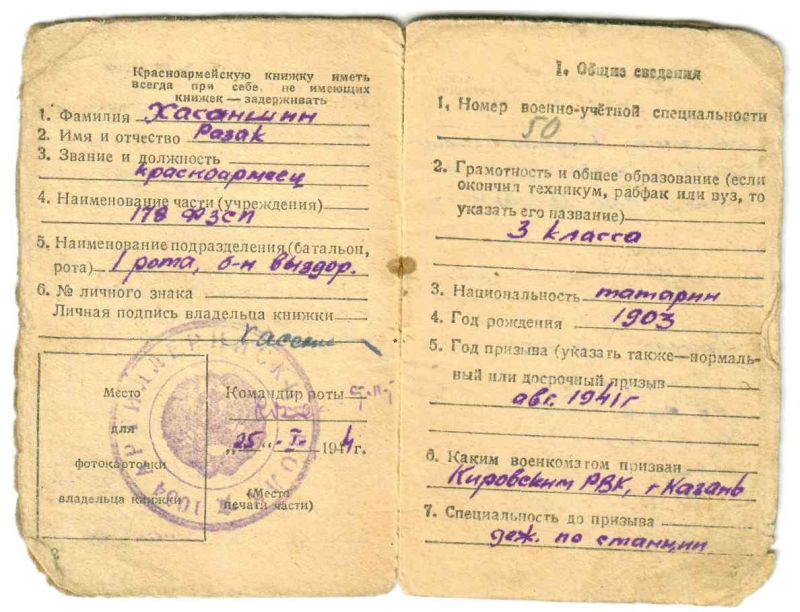 Красноармейскую книжку иметь
всегда при себе, не имеющих
книжек — задерживать
1. Фамилия Хасаншин
2. Имя и отчество Разак
3. Звание и должность
красноармеец
4. Наименование части (учреждения)
178 ФЗСП
5. Наименование подразделения (батальон,
рота) 1 рота, б-н выздор.
6. № личного знака
Личная подпись владельца книжки
Место
для
фотокарточки
владельца книжки
Командир роты
„25“ I 1944 г.
(Место
печати части)
I. Общие сведения
1. Номер военно-учётной специальности
50
2. Грамотность и общее образование (если
окончил техникум, рабфак или вуз, то
указать его название)
3 класса
3. Национальность татарин
4. Год рождения 1903
5. Год призыва (указать также—нормаль-
ный или досрочный призыв
авг. 1941 г
6. Каким военкоматом призван
Кировским РВК, г Казань
7. Специальность до призыва
деж. по станции